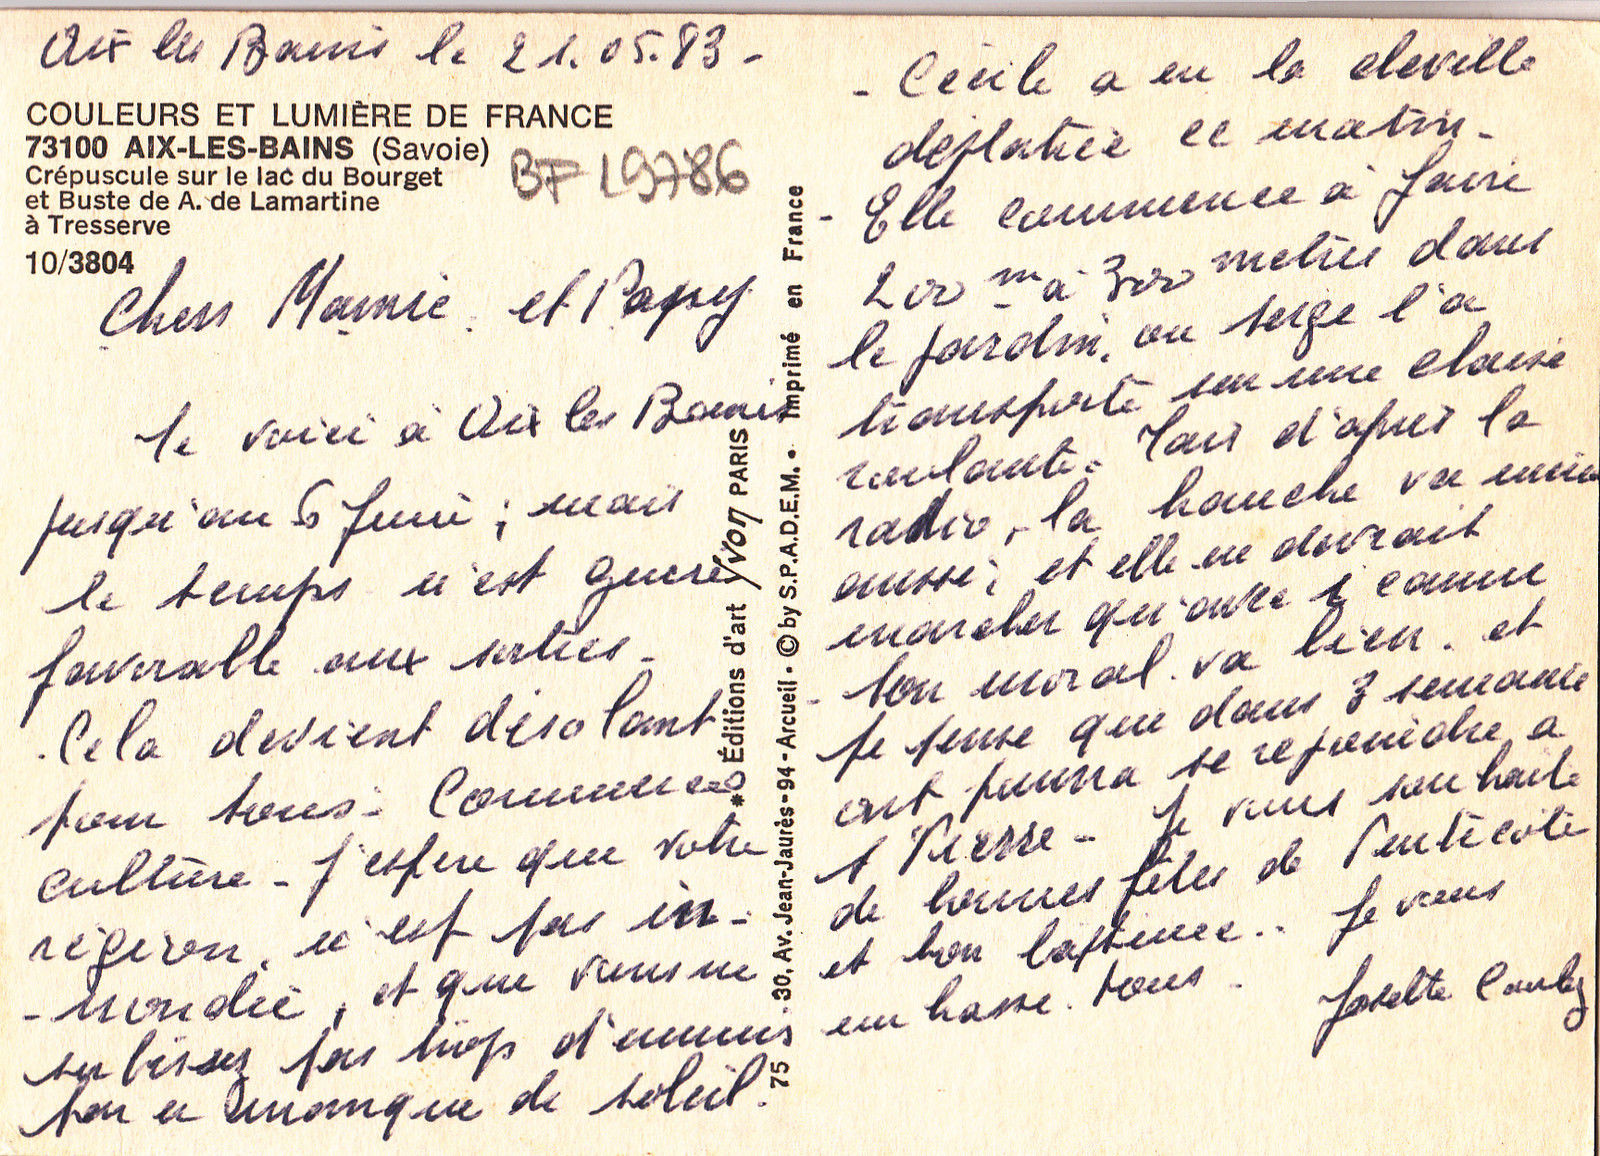 Aix les Bains le 21.05.83 -
COULEURS ET LUMIÈRE DE FRANCE
73100 AIX-LES-BAINS (Savoie)
Crépuscule sur le lac du Bourget
et Buste de A. de Lamartine
à Tresserve
10/3804
BF 19786
Chers Mamie et Papy
Me voici à Aix les Bains
jusqu'au 6 Juin ; mais
le temps n'est guère
favorable aux sorties -
Cela devient désolant
pour tous : Commerce
culture - J'espère que votre
région n'est pas in-
-nondée, et que vous ne
subissez pas trop d'ennuis
par ce manque de soleil.
* Éditions d'art Yvon PARIS
30, Av. Jean-Jaurès - 94 - Arcueil - © by S.P.A.D.E.M. • Imprimé en France
75
- Cécile a eu la cheville
déplatrée ce matin -
- Elle commence à faire
200 m à 300 mètres dans
le jardin, ou Serge l'a
transporte sur une chaise
roulante. Mais d'après la
radio, la hanche va mieux
aussi, et elle ne devrait
marcher qu'avec 1 canne
- Son moral va bien. et
je pense que dans 3 semaines
pourra se rejoindre a
St Pierre - Je vous souhaite
de bonnes fêtes de Pentecôte
et bon baptême.. Je vous
embrasse tous -
Josette